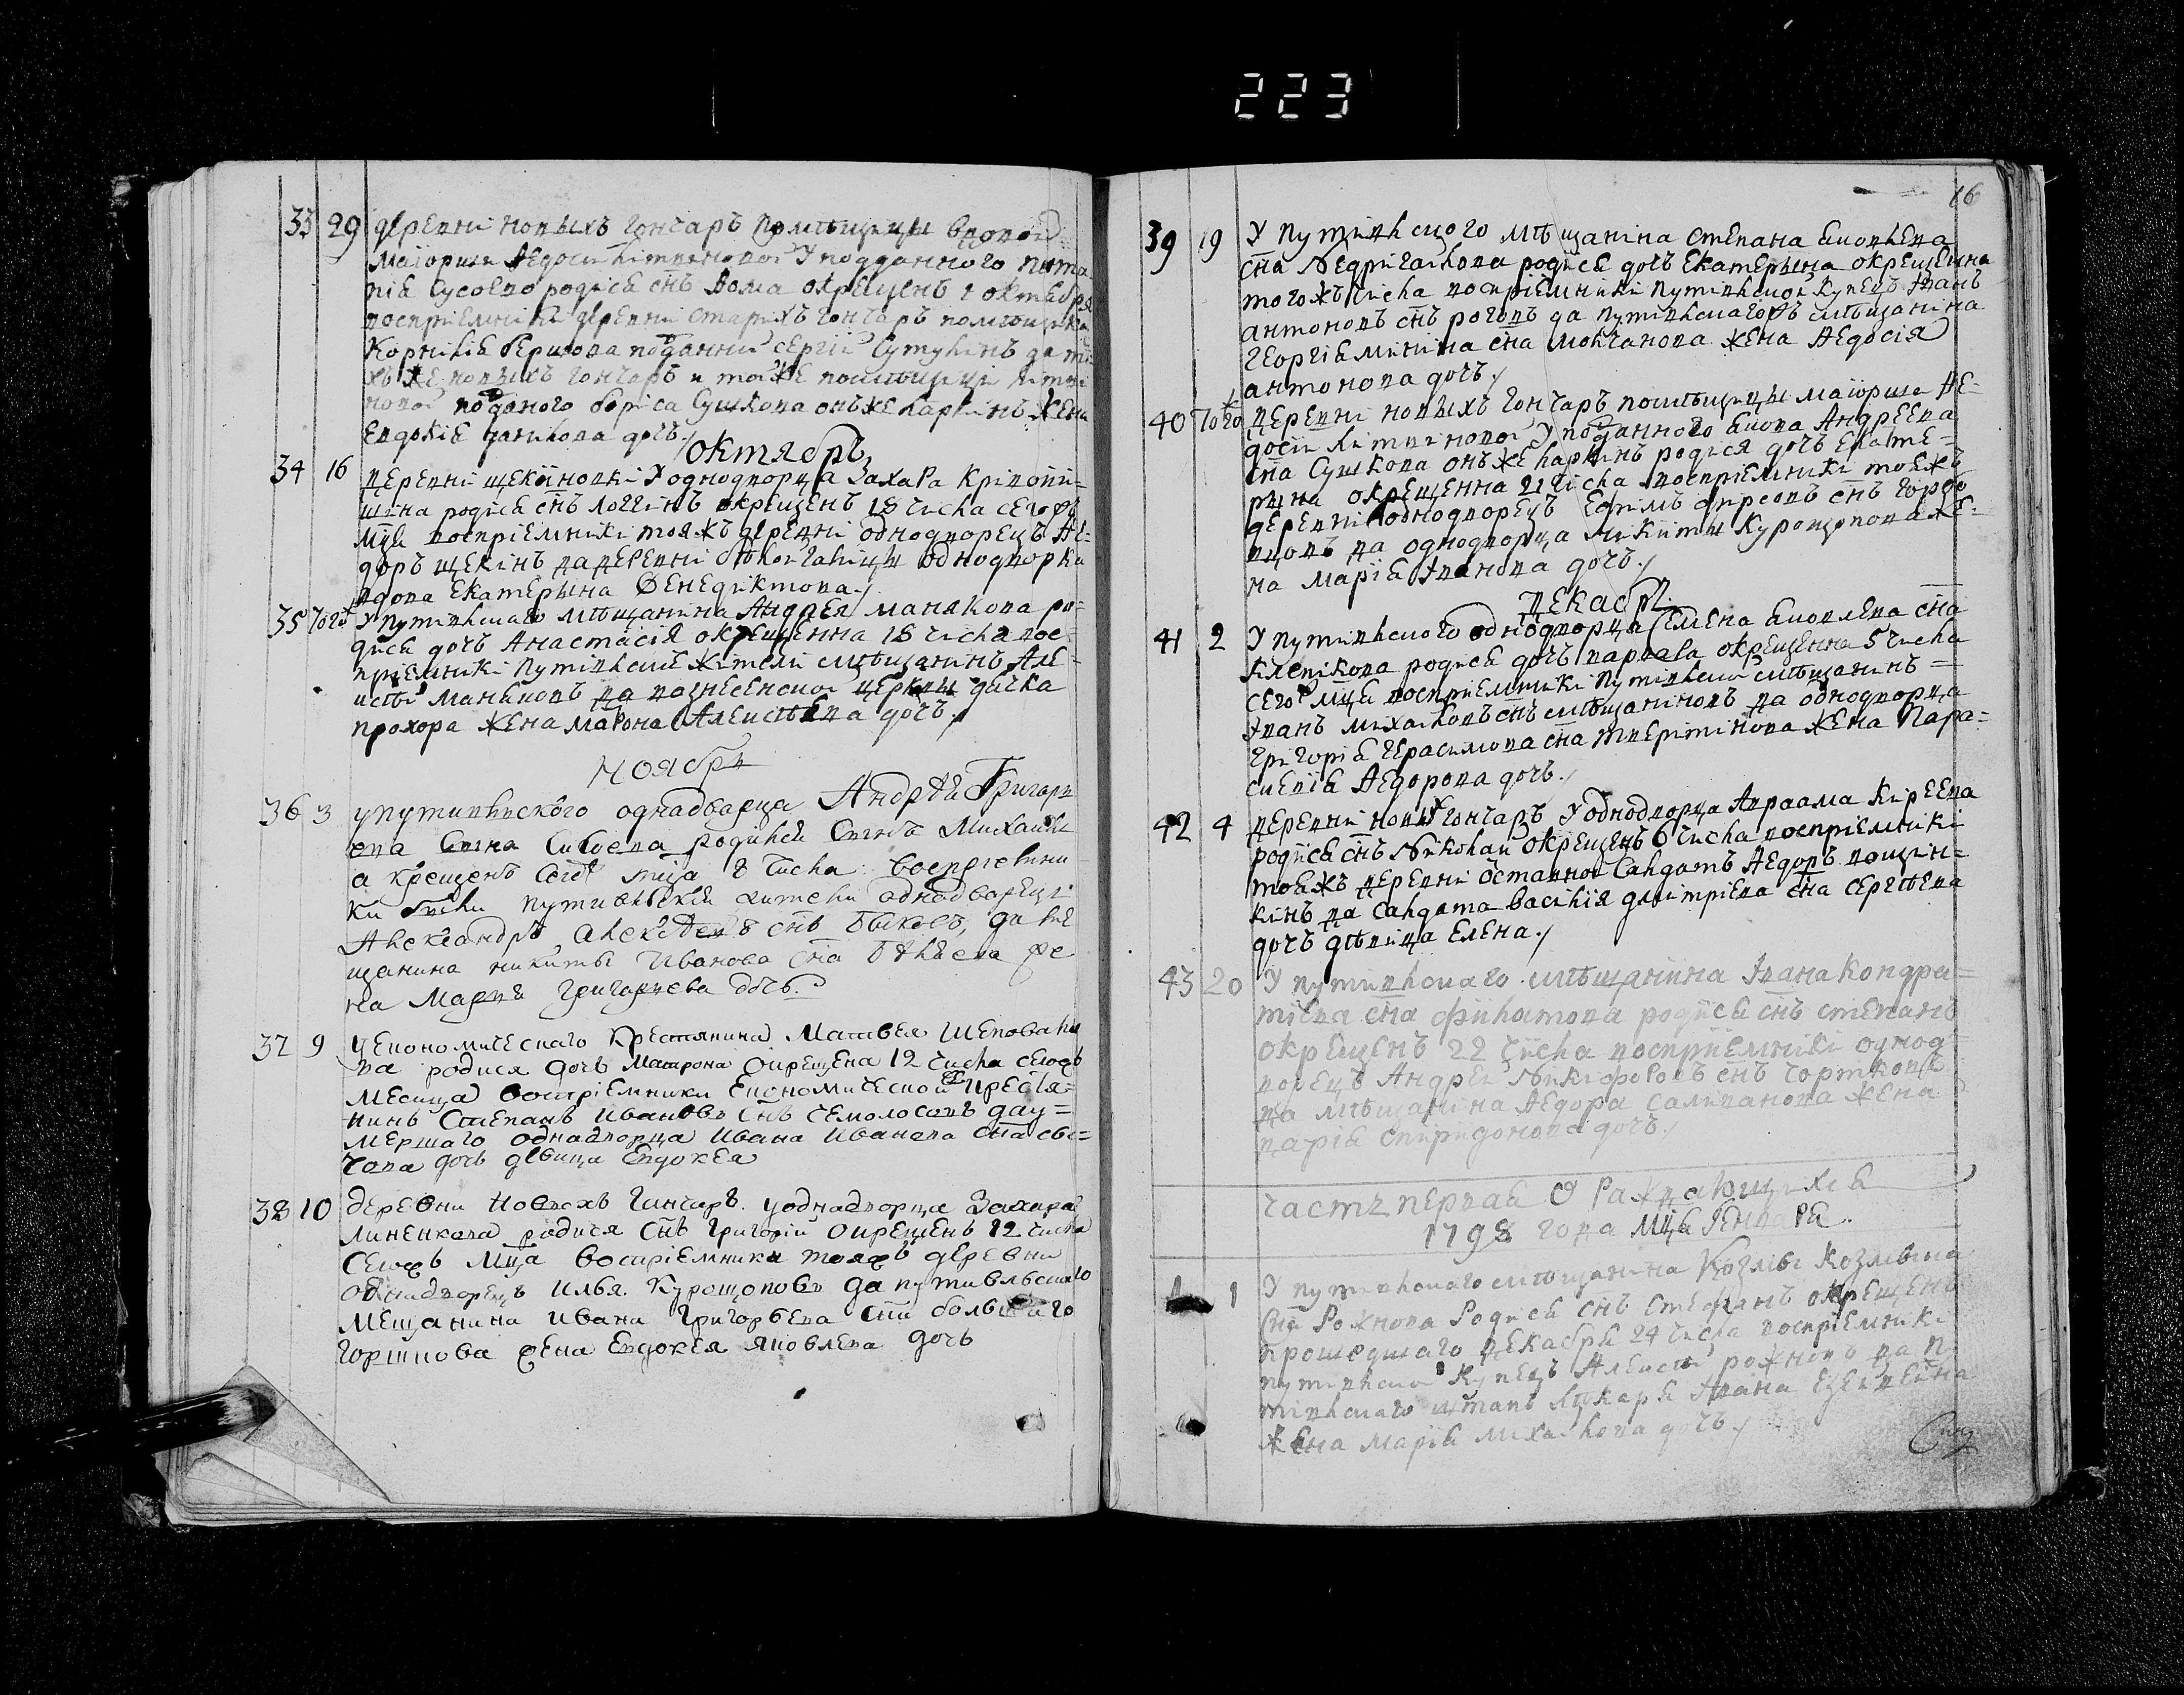 223
33 29 деревни новыхъ Гончаръ помѣщицы вдовои
маіорши Ѳедосіи Литвиновои У подданного
родися снъ Ѳома окрещенъ 1 октября
восприемники деревни старыхъ Гончаръ помѣщика
Корнилія поданный Сергій да тѣ
хъ же новыхъ Гончаръ и тоя же помѣщици Литви
новои поданого бориса Сушкова онъ же Карпинъ жена
Евдокія данилова дочь
Октябрь
34 16 деревни щекиновки У однодворца Захара Кривопи-
шина родися снъ Логгинъ окрещенъ 18 числа сегожъ
мца восприемники тояжъ деревни однодворецъ Ѳе-
доръ щекинъ да деревни однодворка
вдова Екатерына Венедиктова
35 того У путивльского мѣщанина Андрея Манякова ро-
дися дочь Анастасія окрещенна 18 числа вос-
приемники Путивльские жители мѣщанинъ Але-
ксѣй Маняковъ да вознесенскои церкви дячка
прохора жена матрона Алексѣева дочь
Ноябрь
36 3 упутивлнского однадварца Андрѣя Григорь
ева Сына родился Сынъ Михаилъ
а крещенъ Сегож мца 8 числа воспреемни
ки были путивльские жители однадворецъ
Александръ алексѣевъ снъ Быковъ, да ме
щанина никиты Иванова сна Бѣляева же
на Марья Григорьева дочь
37 9 У економическаго Крестянина Матвея Шепова
ва родися дочь Матрона окрещена 12 числа сегожъ
месица воспріемники Економическои крестя-
нинъ Степанъ Ивановъ снъ Семолосовъ да у-
мершаго однадворца Ивана Иванова сна сви-
чова дочь девица Евдокея
38 10 деревни Новыхъ Гончаръ. у однадворца Захара
Линенкова родися снъ Григорій окрещенъ 12 числа
Сегожъ Мца воспріемники тояжъ деревни
однадворецъ Илья Курощповъ да путивльскаго
мещанина Ивана Григорьева сна большаго
Горшкова жена Евдокея яковлева дочь
16
39 19 У путивльского мѣщанина степана яковлева
сна Недригаилова родися дочь Екатерына окрещенна
тогожъ числа восприемники путивльскои купецъ Иванъ
антоновъ снъ роговъ да путивльскагожъ мѣщанина
Георгія Минина сна Молчанова жена Ѳедосія
антонова дочь
40 того деревни новыхъ Гончаръ помѣщицы маіорши Ѳе-
досіи Литвиновои У поданного якова Андреева
сна Сушкова онъ же Карпинъ родися дочь Екате-
рына окрещенна 21 числа восприемники тояжъ
деревни однодворецъ Ефимъ фирсовъ снъ
да однодворца Никиты Курощпова же-
на Марія Иванова дочь
декабрь
41 2 У путивльского однодворца Семена яковлева сна
Клепикова родися дочь варвара окрещенна 5 числа
сего мца восприемники путивльскои мѣщанинъ
Иванъ Михаиловъ снъ мѣщаниновъ да однодворца
Григорія Герасимова сна тверитинова жена Пара-
скевія Ѳедорова дочь
42 4 деревни новых Гончаръ У однодворца Авраама Киреева
родися снъ Николаи окрещенъ 6 числа восприемники
тояжъ деревни оставнои Салдатъ Ѳедоръ вощин-
кинъ да Салдата василія дмитріева сна Сергѣева
дочь дѣвица Елена
43 20 У путивльскаго мѣщанина Ивана Кондра-
тіева сна филатова родися снъ степанъ
окрещенъ 22 числа восприемники однод-
ворецъ Андреи Никифоровъ снъ Чортковъ
да мѣщанина Ѳедора Саливанова жена
варія спиридонова дочь
часть первая О Раждающихся
1798 года мца Генваря.
1 1 У путивльскаго мѣщанина Козмы Козмина
сна Рожнова Родися снъ Стефанъ окрещенъ
прошедшаго декабря 24 числа восприемники
путивльскои купецъ Алексѣй рожновъ да пу
тивльскаго штапъ лѣкаря Ивана
жена Марія Михаилова дочь